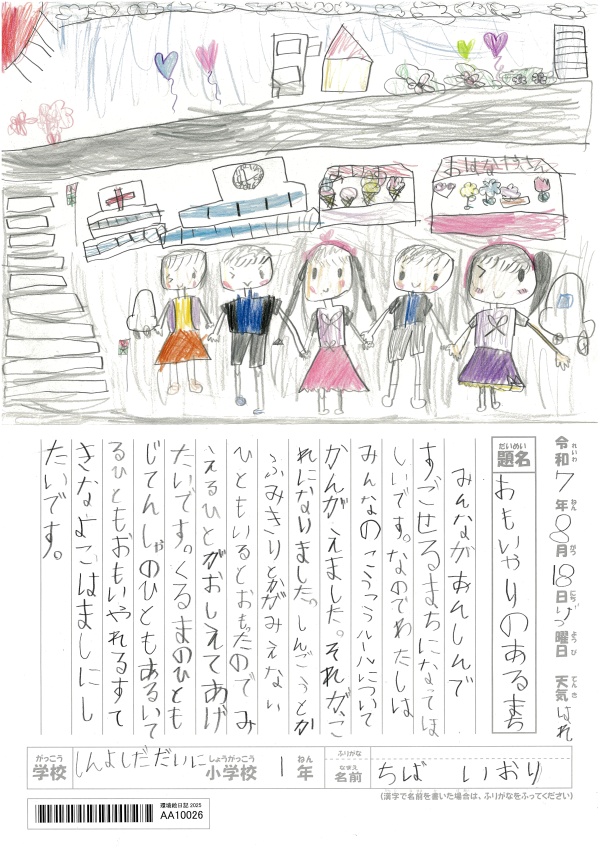 おはなやさん
令和7年8月18日げつ曜日 天気 はれ
れいわ ねん がつ にち ようび てんき
だいめい
題名 おもいやりのあるまち
みんながあんしんで
すごせるまちになってほ
しいです。なのでわたしは
みんなのこうつうルールについて
かんがえました。それが、こ
れになりました。しんごうとか
ふみきりとかがみえない
ひともいるとおもったので み
えるひとがおしえてあげ
たいです。くるまのひとも
じてんしゃのひともあるいて
るひともおもいやれるすて
きなよこはましにし
たいです。
がっこう しょうがっこう ねん ふりがな なまえ
学校 しんよしだだいに 小学校 1年 名前 ちば いおり
(漢字で名前を書いた場合は、ふりがなをふってください)
環境絵日記 2025
AA10026